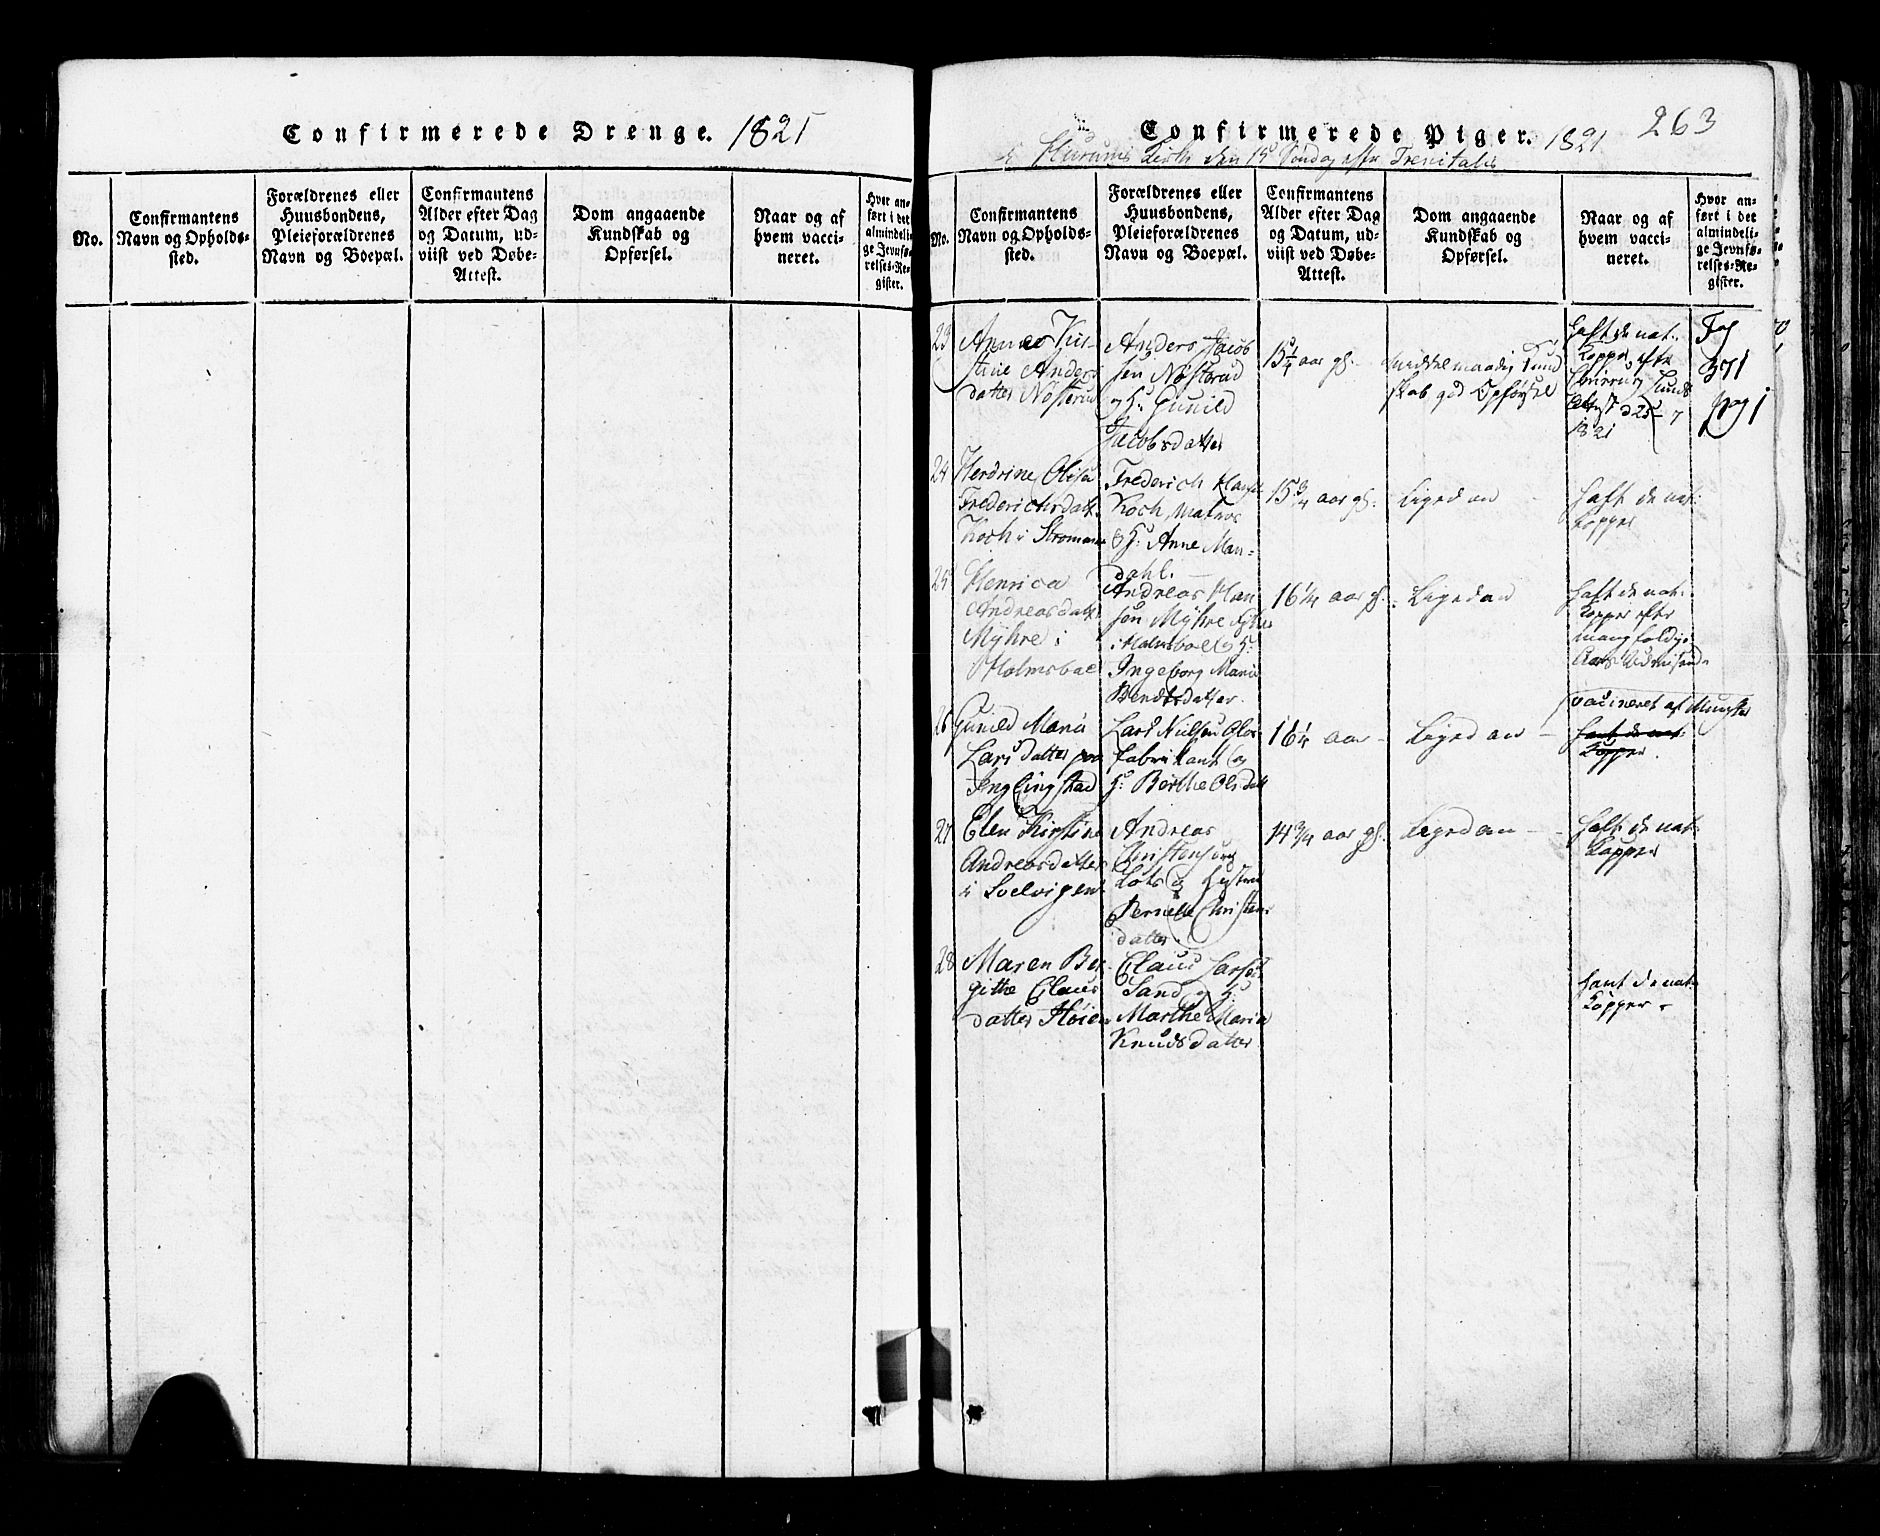 Confirmerede Drenge. 1821
No.
Confirmantens
Navn og Opholds-
sted.
Forældrenes eller
Huusbondens,
Pleieforældrenes
Navn og Boepæl.
Confirmantens
Alder efter Dag
og Datum, ud-
viist ved Døbe-
Attest.
Dom angaaende
Kundskab og
Opførsel.
Naar og af
hvem vacci-
neret.
Hvor an-
ført i det
almindeli-
ge Jevnfø-
relses-Re-
gister.
263
Confirmerede Piger. 1821
i Hurums Kirke den 15 Søndag efter Trenitatis
No.
Confirmantens
Navn og Opholds-
sted.
Forældrenes eller
Huusbondens,
Pleieforældrenes
Navn og Boepæl.
Confirmantens
Alder efter Dag
og Datum, ud-
viist ved Døbe-
Attest.
Dom angaaende
Kundskab og
Opførsel.
Naar og af
hvem vacci-
neret.
Hvor an-
ført i det
almindeli-
ge Jevnfø-
relses-Re-
gister.
23
Anne Kir-
stine Anders
datter Nøsterud
Anders Jacob
sen Nøsterud
og H: Gunild
Jacobsdatter
15 1/4 aar gl. -
middelmaadig Kund
skab god Opførsel
haft de nat:
Kopper efter
1821
Fog
371
pag 1
24
Herdrine Olisea
Frederichsdatt.
Koch i Strømmen
Frederich Hansen
Koch, Matros
og H: Anne Man-
dahl. -
15 3/4 aar gl.
Ligedan
haft de nat:
kopper
25
Henrica
Andreasdatt.
Myhre i
Holmsboe
Andreas Han
sen Myhre
i Holmsboe og H:
Ingeborg Marie
Bendtsdatter.
16 1/4 aar gl.
Ligedan
haft de nat:
Kopper efter
mangfoldige
26
Gunild Maria
Larsdatter paa
Englingstad
Lars Nielsen
fabrikant og
H: Berthe Olsdatt
16 1/4 aar -
Ligedan -
vacineret af Munster
havt de nat
Kopper.
27
Elen Kirstine
Andreasdatter
i Svelvigen
Andreas
Christensen
Lots og Hustru
Pernelle Christens
datter.
14 3/4 aar gl.
Ligedan -
haft de nat:
Kopper
28
Maren Ber-
githe Claus
datter Høien
Claus Larsen
Sand og H:
Marthe Maria
Knudsdatter
havt de nat:
Kopper -